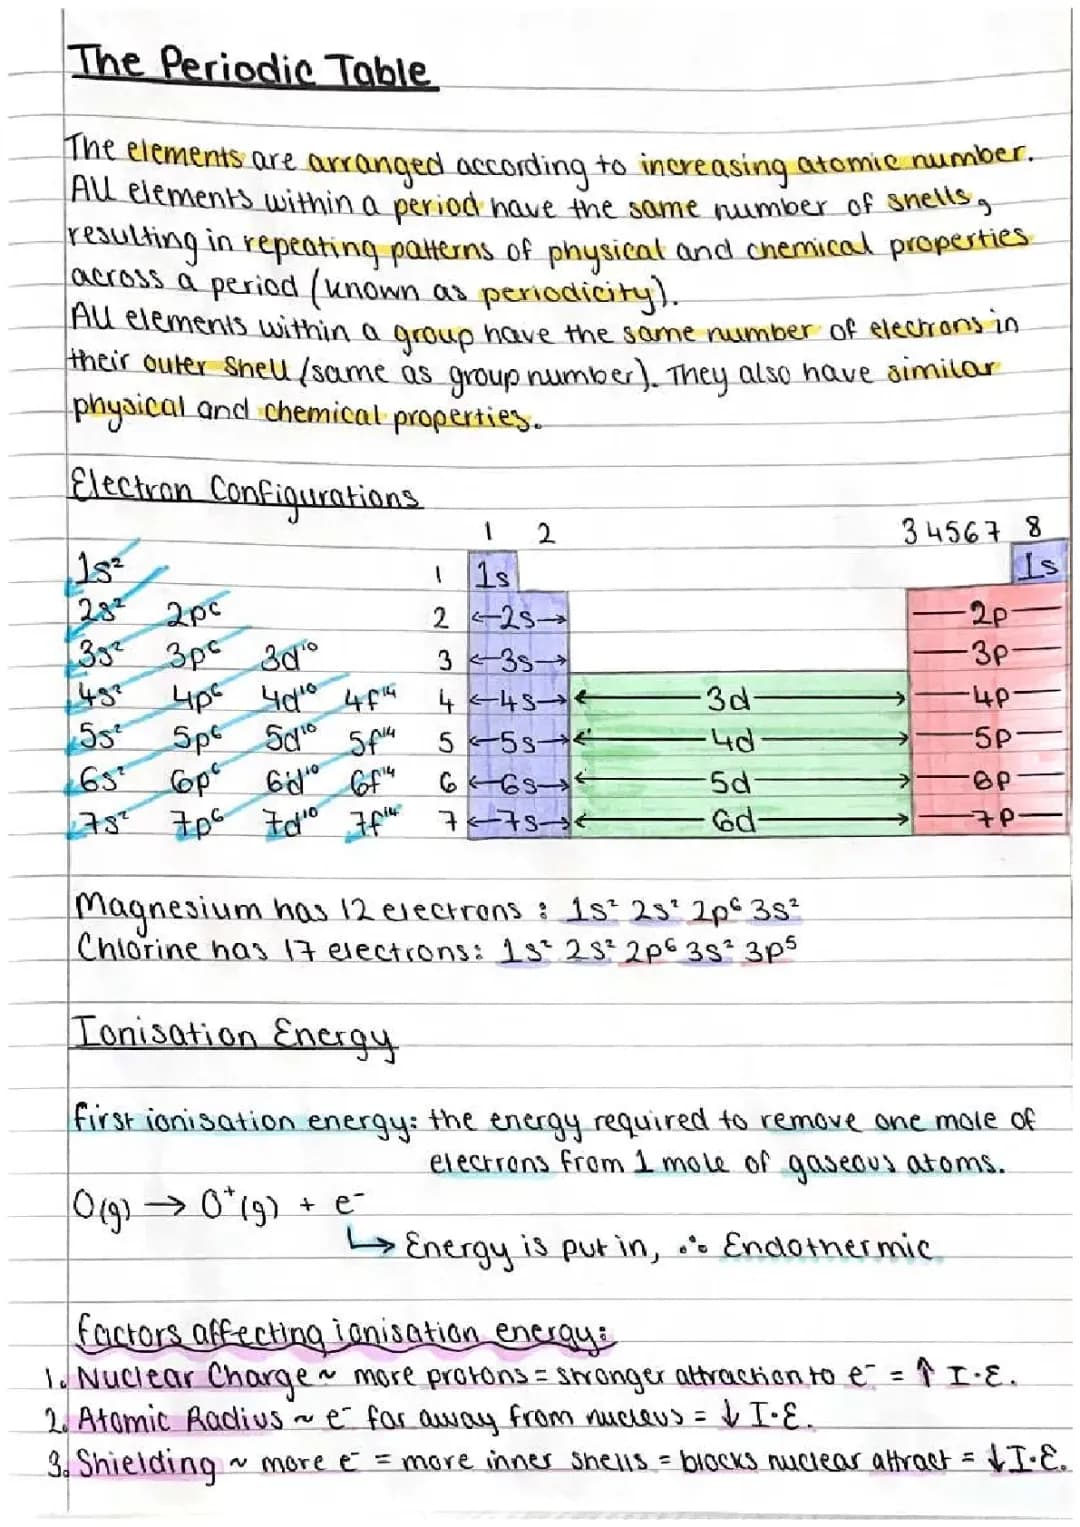 The Periodic Table
The elements are arranged according to increasing atomic number.
All elements within a period have the same number of shells,
resulting in repeating patterns of physical and chemical properties
across a period (known as periodicity).
All elements within a group have the same number of electrons in
their outer shell (same as group number). They also have similar
physical and chemical properties.
Electron Configurations
1 2 3 4 5 6 7 8
1s² 1 1s 1s
2s² 2p⁶ 2 ←2s→ 2p
3s² 3p⁶ 3d¹⁰ 3 ←3s→ 3p
4s² 4p⁶ 4d¹⁰ 4f¹⁴ 4 ←4s→ ← 3d → 4p
5s² 5p⁶ 5d¹⁰ 5f¹⁴ 5 ←5s→ ← 4d → 5p
6s² 6p⁶ 6d¹⁰ 6f¹⁴ 6 ←6s→ ← 5d → 6p
7s² 7p⁶ 7d¹⁰ 7f¹⁴ 7 ←7s→ ← 6d → 7p
Magnesium has 12 electrons : 1s² 2s² 2p⁶ 3s²
Chlorine has 17 electrons: 1s² 2s² 2p⁶ 3s² 3p⁵
Ionisation Energy
first ionisation energy: the energy required to remove one mole of
electrons from 1 mole of gaseous atoms.
O(g) → O⁺(g) + e⁻
↳ Energy is put in, ∴ Endothermic
factors affecting ionisation energy:
1. Nuclear Charge ~ more protons = stronger attraction to e⁻ = ↑ I.E.
2. Atomic Radius ~ e⁻ far away from nucleus = ↓ I.E.
3. Shielding ~ more e⁻ = more inner shells = blocks nuclear attract = ↓ I.E.